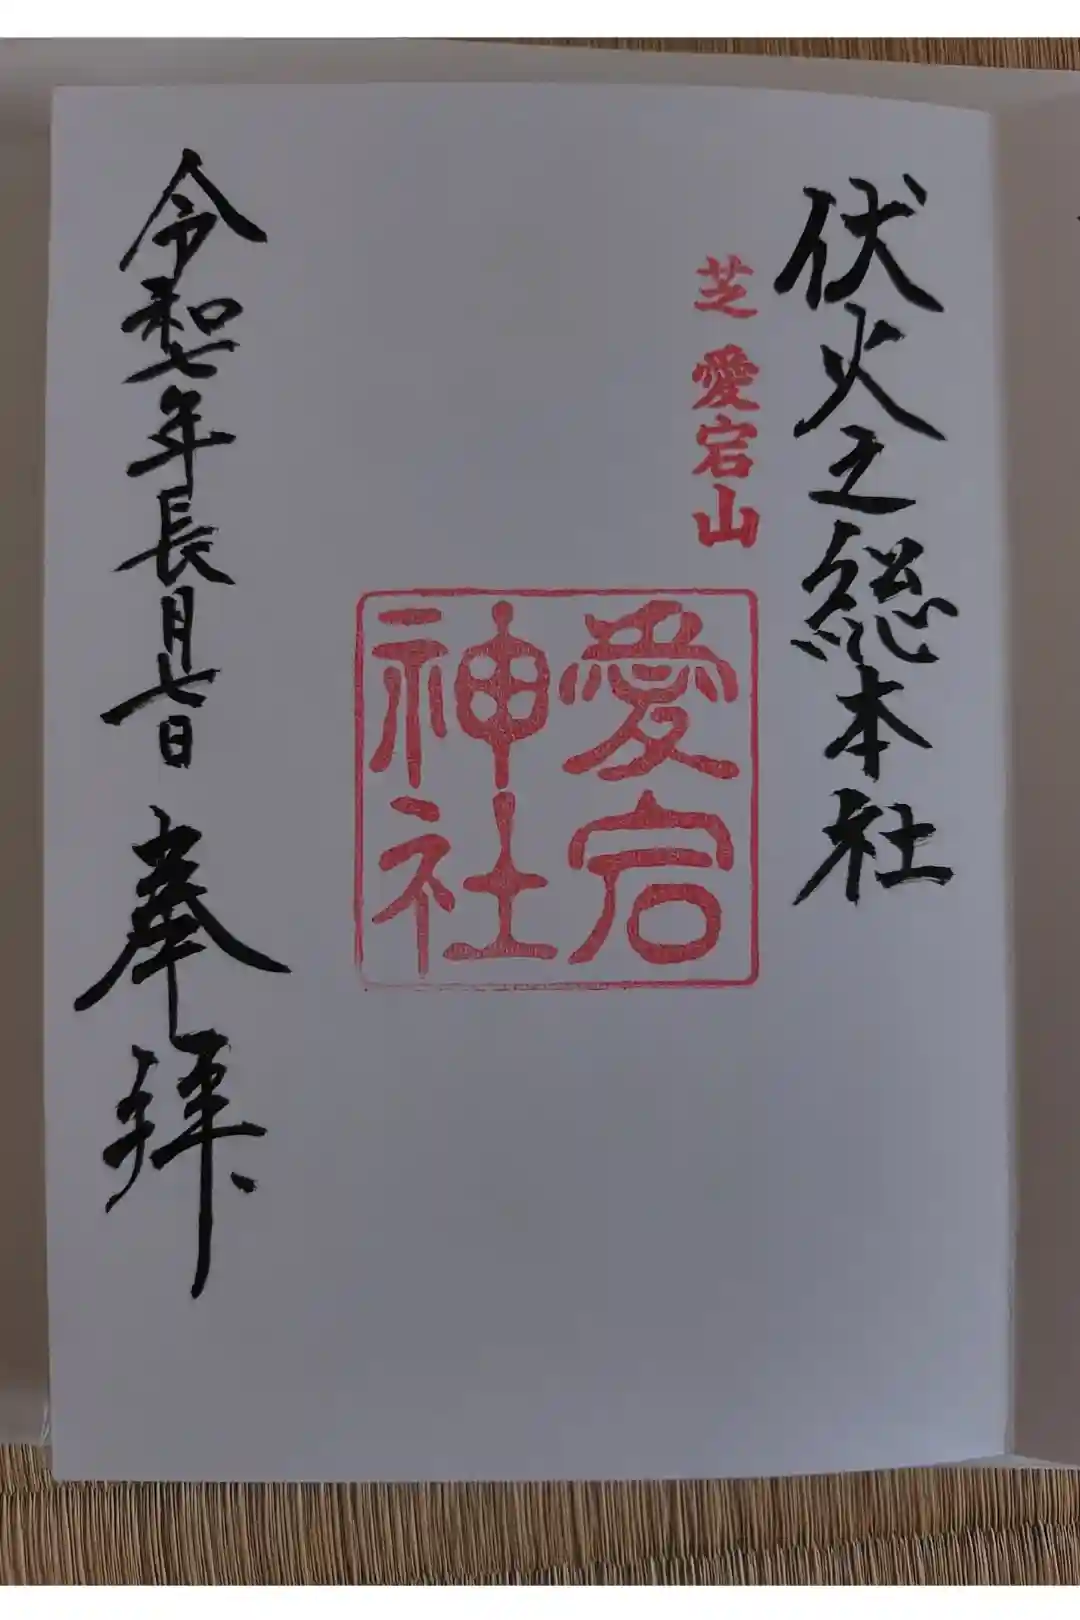 伏火之総本社
芝 愛宕山
愛宕
神社
令和七年長月七日 奉拝